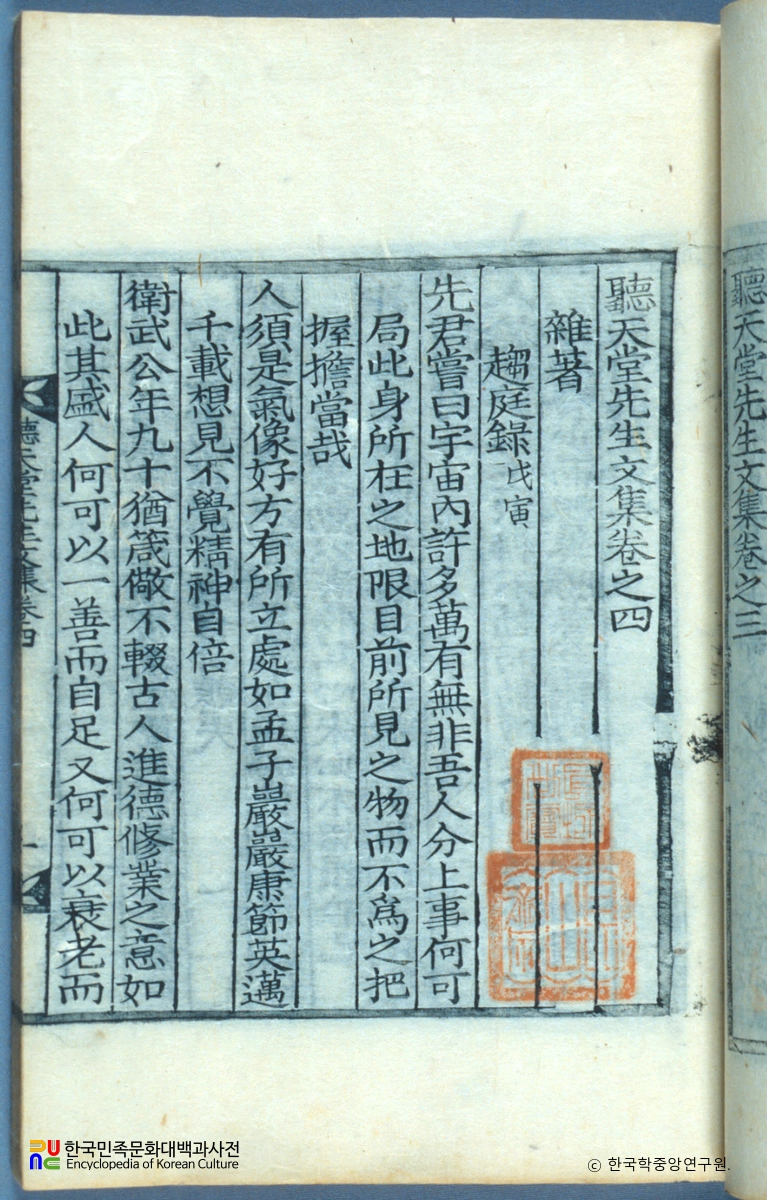 聽天堂先生文集卷之三
聽天堂先生文集卷之四
雜著
趨庭錄戊寅
先君嘗曰宇宙內許多萬有無非吾人分上事何可
局此身所在之地限目前所見之物而不爲之把
握擔當哉
人須是氣像好方有所立處如孟子巖巖康節英邁
千載想見不覺精神自倍
衛武公年九十猶箴儆不輟古人進德修業之意如
此其盛人何可以一善而自足又何可以衰老而
聽天堂先生文集卷四
한국민족문화대백과사전
Encyclopedia of Korean Culture
© 한국학중앙연구원.